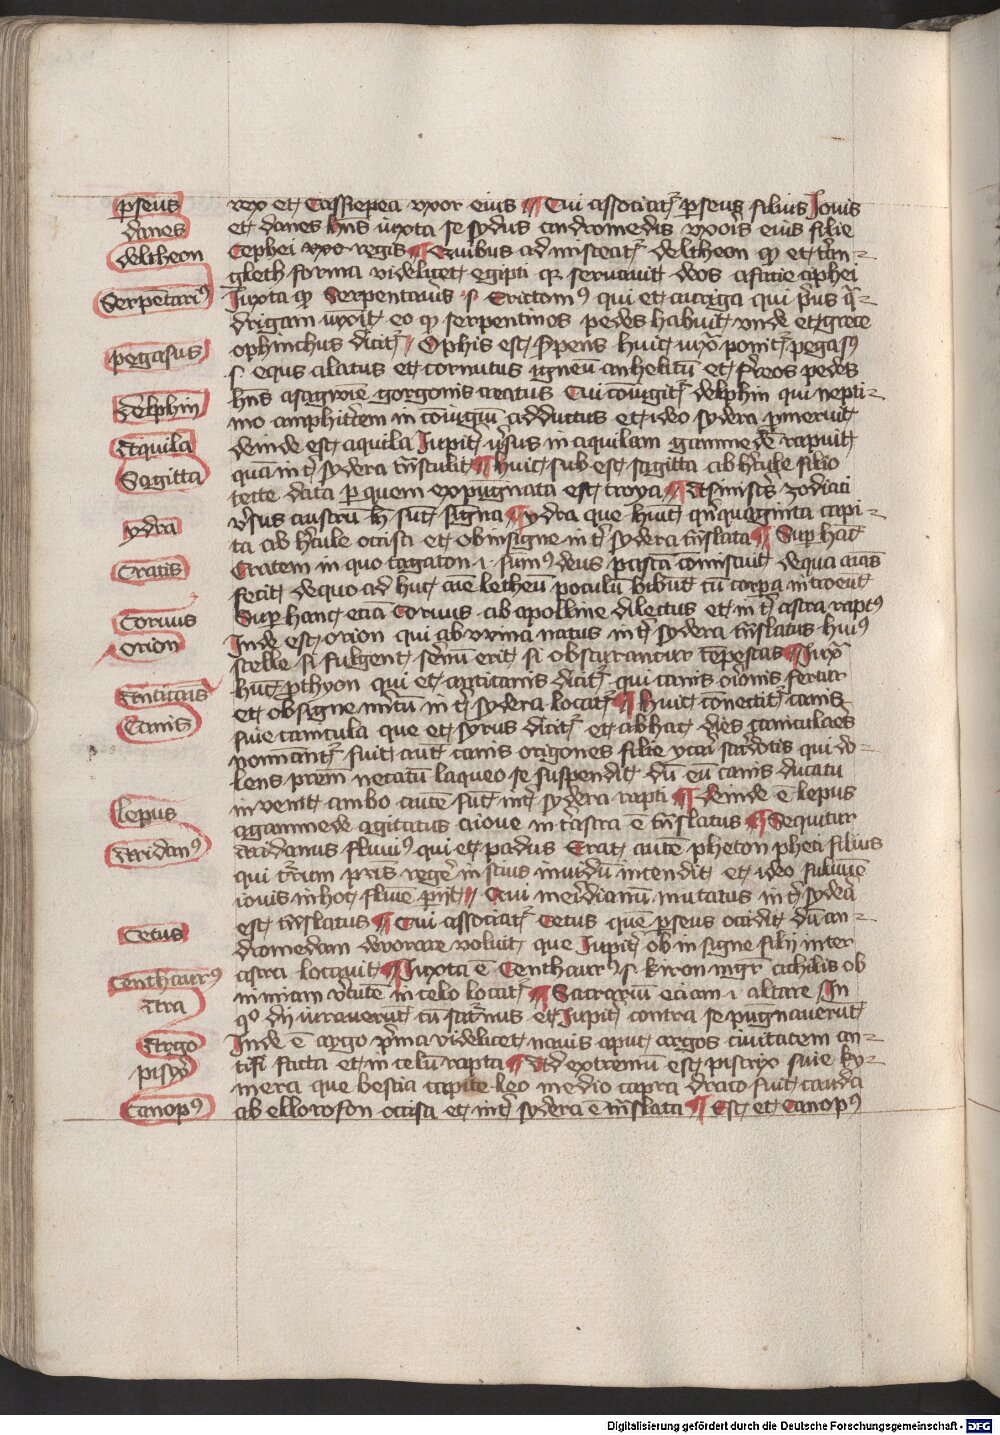 perseus
danes
deltheon
Serpentari⁹
pegasus
delphin
Aquila
Sagitta
ydra
Cratis
Corvus
orion
Anticanis
Canis
lepus
Aridan⁹
Cetus
Centhaur⁹
Ara
Argo
pistrix
Canop⁹
rex et Cassiepea vxor eius ¶ Cui associatr perseus filius Jouis
et danes hns iuxta se sydus andromedis vxois eius filie
Cephei vxo regis ¶ Quibus ad misceatr deltheon qd et trian=
gleth forma videlicet egipti qr seruauit deos a facie ciphei
Juxta qd Serpentarius .s. Erictoni⁹ qui et auriga qui prius qua=
drigam iunxit eo qd serpentinos pedes habuit vnde et grece
ophinchus dicitr Ophis est serpens huic iuxa ponitr pegas⁹
.s. equs alatus et cornutus igneū anhelitū et ferreos pedes
hns a sagwīe gorgonis creatus Cui coniūgitr delphin qui nepti=
mo amphitrem in coniugiū adductus et ideo sydera permeruit
deinde est aquila Jupiter versus in aquilam ganimedē rapuit
quā inter sydera transtulit ¶ huic sub est sagitta ab hercule filio
tette data per quem expugnata est troya ¶ A sinistris zodiaci
versus austrū h sunt signa ¶ ydra que huit quinquaginta capi=
ta ab hercule occisa et ob insigne inter sydera translata ¶ Super hac
Cratem in quo tagaton .i. sum⁹ deus pastā comiscuit de qua aias
fecit de quo ad huc aīe letheū poculū bibūt cū corpora introeūt
Super hanc etiā Corvus ab apolline dilectus et inter astra rapt⁹
Inde est orion qui ab vrina natus inter sydera translatus hui⁹
stelle si fulgent serenū erit si obscurantur tēpestas ¶ Juxa
hūc prothyon qui et anticanis dicitr qui canis orionis fertur
et ob signe meritū inter sydera locatr ¶ huic cōnectitr canis
siue canicula que et syrus dicitr et ab hac dies caniculares
nominantr fuit aut canis origones filie ycari sacerdotis qui do=
lens prem necatū laqueo se suspendit dū eū canis ducatu
in venit ambo autē sūt inter sydera rapti ¶ deinde ē lepus
a ganimede agitatus a ioue inter astra ē translatus ¶ Sequitur
Aridanus fluui⁹ qui et padus Erat autē pheton phebi filius
qui terrarum patris regere inscius mundū incendit et ideo fulmīe
iouis in hoc fluuīe periit Qui in meridianū mutatus inter sydera
est translatus ¶ Cui associatr Cetus quē perseus occidit dū an=
dromedam devorare voluit que Jupiter ob insigne filij inter
astra locauit ¶ Juxta ē Centhaur⁹ .s. kiron mgr achilis ob
nimiam virtutē in celo locatr ¶ Sacrariū eciam .i. altare In
qo dij iurauerūt cū saturnus et Jupiter contra se pugnauerūt
Inde ē argo prima videlicet nauis aput argos ciuitatem an=
tiki facta et in celū rapta ¶ Ad extremū est pistrix siue ky=
mera que bestia capite leo medio capra draco fuit cauda
ab ellorofon occisa et inter sydera ē translata ¶ Est et Canop⁹
Digitalisierung gefördert durch die Deutsche Forschungsgemeinschaft - DFG